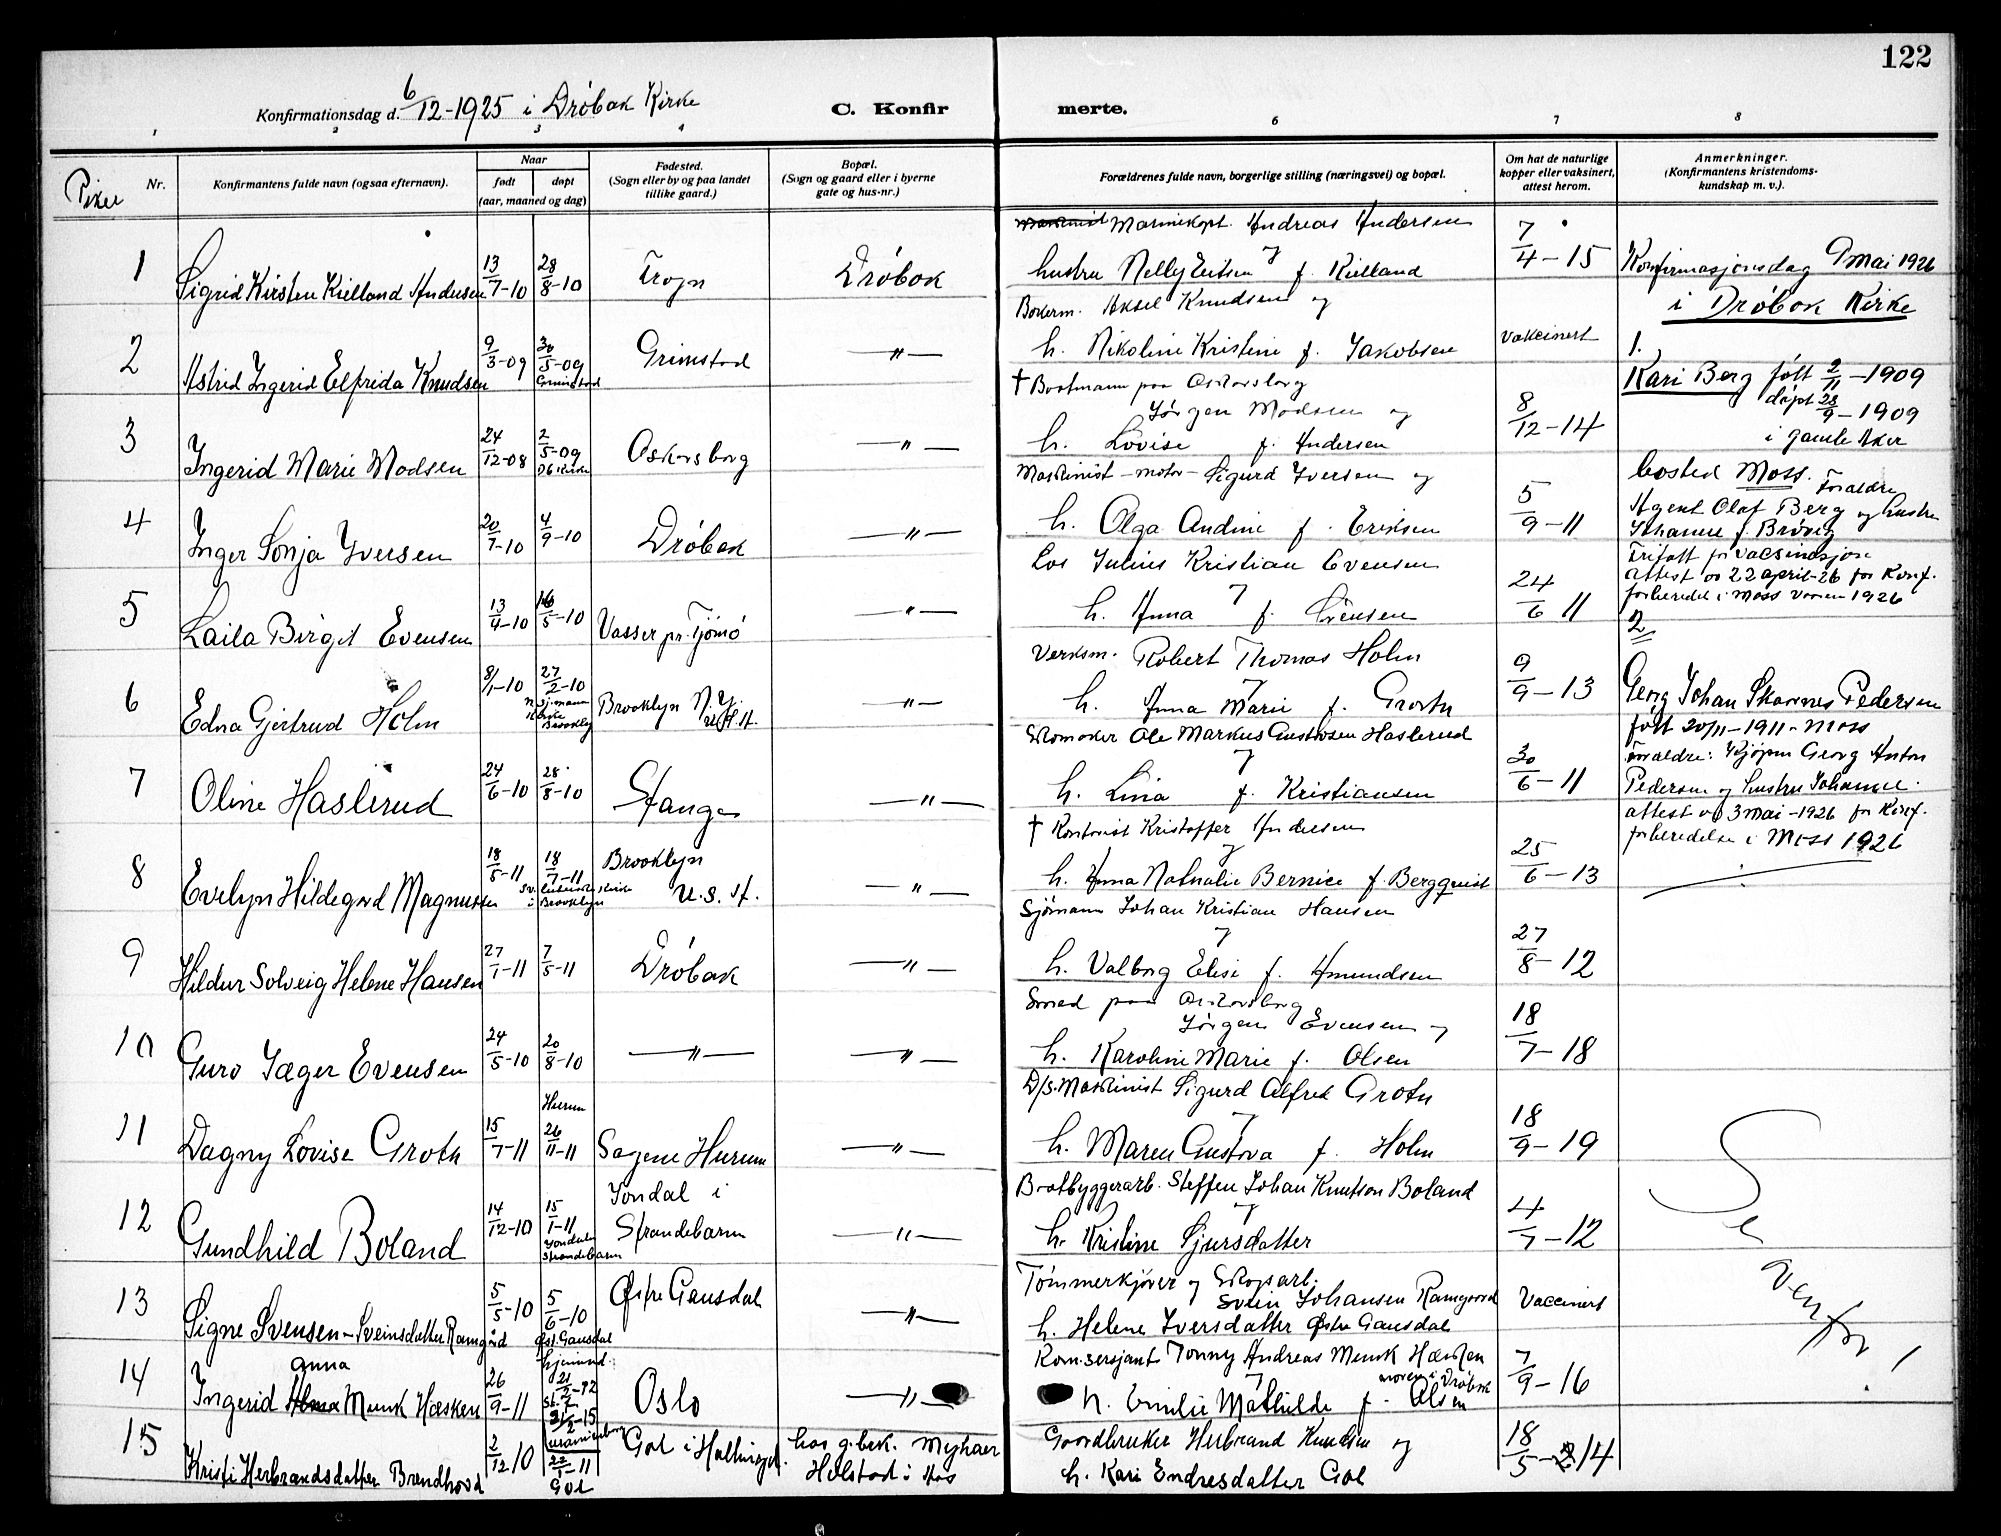 122
Konfirmationsdag d. 6/12-1925 i Drøbak Kirke
C. Konfir merte.
1 2 3 4 6 7 8
Piker
Nr.
Konfirmantens fulde navn (ogsaa efternavn).
Naar
født
døpt
(aar, maaned og dag)
Fødested.
(Sogn eller by og paa landet
tillike gaard.)
Bopæl.
(Sogn og gaard eller i byerne
gate og hus-nr.)
Forældrenes fulde navn, borgerlige stilling (næringsvei) og bopæl.
Om hat de naturlige
kopper eller vaksinert,
attest herom.
Anmerkninger.
(Konfirmantens kristendoms-
kundskap m. v.).
Marinekapt. Andreas Andersen
1 Sigrid Kirsten Kielland Andersen 13/7-10 28/8-10 Frogn Drøbak og hustru Nelly f. Kielland 7/4-15
Bokerm. Aksel Knudsen og
2 Astrid Ingerid Elfrida Knudsen 9/3-09 30/5-09 Grimstad Grimstad -"- h. Nikoline Kristine f. Jakobsen Vakcinert
† Baatmann paa Oskarsborg
Jørgen Madsen og
3 Ingerid Marie Madsen 24/12-08 2/5-09 Oskarsborg -"- h. Lovise f. Andersen 8/12-14
Maskinist - motor - Sigurd Iversen og
4 Inger Sonja Iversen 20/7-10 4/9-10 Drøbak -"- h. Olga Andine f. Eriksen 5/9-11
Los Julius Kristian Evensen
5 Laila Birgit Evensen 13/4-10 16/5-10 Vasser pr. Tjømø -"- og h. Anna f. Sørensen 24/6 11
Verksm. Robert Thomas Holm
6 Edna Gjertrud Holm 8/1-10 27/2-10 n. sjømann kirke Brooklyn Brooklyn N.Y. U.S.A. -"- og h. Anna Marie f. Groth 9/9-13
Skomaker Ole Markus Gustavsen Haslerud
7 Oline Haslerud 24/6-10 28/8-10 Stange -"- og h. Lina f. Kristiansen 30/6-11
† Kontorist Kristoffer Andersen
8 Evelyn Hildegard Magnussen 18/5-11 18/7-11 sv. luthersk kirke i Brooklyn Brooklyn U.S.A. -"- og h. Anna Nathalie Bernice f. Bergquist 25/6-13
Sjømann Johan Kristian Hansen
9 Hildur Solveig Helene Hansen 27/1-11 7/5-11 Drøbak -"- og h. Valborg Elise f. Amundsen 27/8-12
Smed paa Oskarsborg
Jørgen Evensen og
10 Guro Jæger Evensen 24/5-10 20/8-10 -"- -"- h. Karoline Marie f. Olsen 18/7-18
D/S. Maskinist Sigurd Alfred Groth
11 Dagny Lovise Groth 15/7-11 Hurum 26/11-11 Sagene Hurum -"- og h. Maren Gustava f. Holm 18/9-19
Baatbyggerarb. Steffen Johan Knutson Boland
12 Gundhild Boland 14/12-10 15/1-11 Jondal Strandebarm Jondal i Strandebarm -"- og h. Kristine Sjursdatter 4/7-12
Tømmerkjører og Skogsarb.
Svein Johansen Ramgaard
13 Signe Svensen-Sveinsdatter Ramgård 5/5-10 5/6-10 Øst. Gausdal Østre Gausdal -"- h. Helene Iversdatter Østre Gausdal Vaccinert
Kom.sersjant Tonny Andreas Munk Hæsken
14 Ingerid Anna Munk Hæsken 26/9-11 hjemmed. Oslo -"- og h. Emilie Mathilde f. Olsen moren i Drøbak 7/9-16
Gaardbruker Herbrand Knudsen og
15 Kristi Herbrandsdatter Brendhovd 2/12 10 22/1-11 Gol Gol i Hallingd. hos g.bek. Myhrer Holstad i Aas h. Kari Endresdatter Gol 18/5-14
Konfirmasjonsdag 9 mai 1926
i Drøbak Kirke
1.
Kari Berg født 2/11-1909
døpt 28/9-1909
i gamle Aker
bosted Moss. Foræeldre
Agent Olaf Berg og hustru
Johanne f. Brøvig
Fritatt for vaksinasjon
attest av 22 april-26 for Konf.
forberedel. i Moss vaaren 1926
2
Georg Johan Skavnes Pedersen
født 20/11-1911-Moss
Foraldre: Kjøpm Georg Anton
Pedersen og hustru Johanne
attest av 3 mai-1926 for Konf.
forberedelse i Moss 1926
Se venfor!